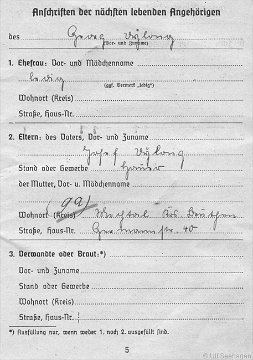 Anschriften der nächsten lebenden Angehörigen
des Georg
(Vor- und Zuname)
1. Ehefrau: Vor- und Mädchenname
ledig
(ggf. Vermerk „ledig“)
Wohnort (Kreis)
Straße, Haus-Nr.
2. Eltern: des Vaters, Vor- und Zuname
Josef
Stand oder Gewerbe Häuer
der Mutter, Vor- u. Mädchenname
Wohnort (Kreis)
Straße, Haus-Nr. 40
3. Verwandte oder Braut:*)
Vor- und Zuname
Stand oder Gewerbe
Wohnort (Kreis)
Straße, Haus-Nr.
*) Ausfüllung nur, wenn weder 1. noch 2. ausgefüllt sind.
5